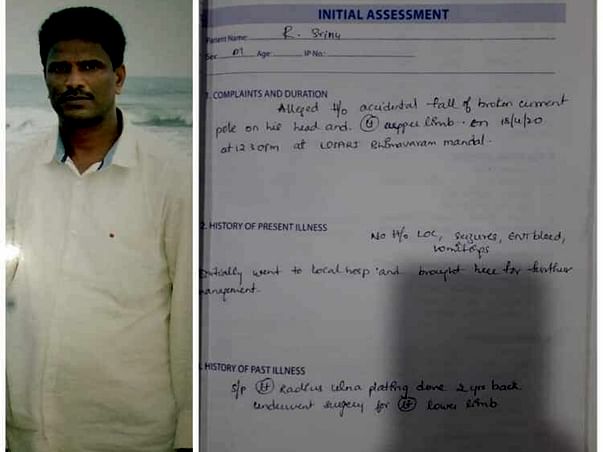 INITIAL ASSESSMENT
Patient Name: R. Srinu
Sex: M Age: IP No:
1. COMPLAINTS AND DURATION
Alleged H/o accidental fall of broken current
pole on his head and (Lt) upper limb on 18/4/20
at 12 30pm at LOSARI Bhimavaram mandal.
2. HISTORY OF PRESENT ILLNESS
No H/o LOC, seizures, ENT bleed,
vomitings
Initially went to local hosp and brought here for further
management.
. HISTORY OF PAST ILLNESS
S/p (Lt) Radius ulna plating done 2 yrs back
underwent surgery for (Lt) lower limb